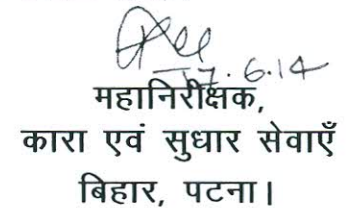 17.6.14
महानिरीक्षक,
कारा एवं सुधार सेवाएँ
बिहार, पटना।